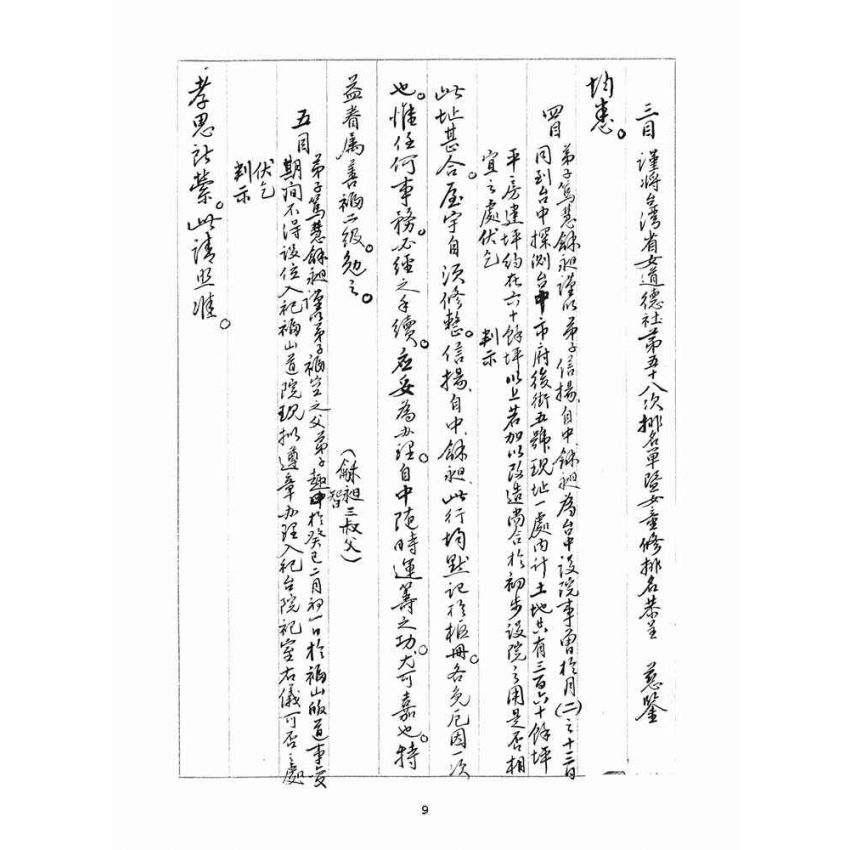 三目 謹將台灣省女道德社第五十八次排名單暨女童修排名恭呈 慈鑒
均悉。
四目 弟子篤慧龢昶謹以弟子信揚、自中、龢昶為台中設院事曾於月(二)之十三日
同到台中探測台中市府後街五號現址一處內計土地共有三百六十餘坪
平房建坪約在六十餘坪以上若加以改造尚合於初步設院之用是否相
宜之處伏乞 判示
此址甚合。屋宇自須修整。信揚、自中、龢昶、此行均默記於柜冊。各免厄因一次
也。惟任何事務。必經之手續。應妥為办理。自中随時運籌之功。尤可嘉也。特
益眷属善福二級。勉之。
(龢昶三叔父)
五目 弟子篤慧龢昶謹以弟子福空之父弟子趣中智於癸巳二月初一日於福山皈道事變
期间不得設位入祀福山道院現拟遵章办理入祀台院祀室右儀可否之處
伏乞
判示
孝思所縈。此請照准。
9